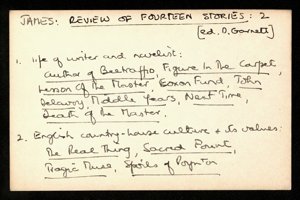 JAMES: REVIEW OF FOURTEEN STORIES: 2
[ed. D. Garnett]
1. life of writer and novelist:
Author of Beltraffio, Figure In The Carpet,
Lesson Of The Master, Coxon Fund, John
Delavoy, Middle Years, Next Time,
Death of the Master.
2. English country-house culture & its values:
The Real Thing, Sacred Fount,
Tragic Muse, Spoils of Poynton